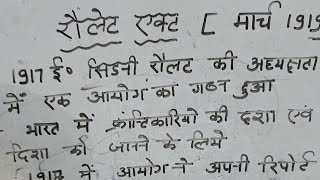 रौलेट एक्ट [ मार्च 1919
1917 ई० सिडनी रौलट की अध्यक्षता
में एक आयोग का गठन हुआ
भारत में क्रान्तिकारियो की दशा एवं
दिशा को जानने के लिये
1917 में आयोग ने अपनी रिपोर्ट